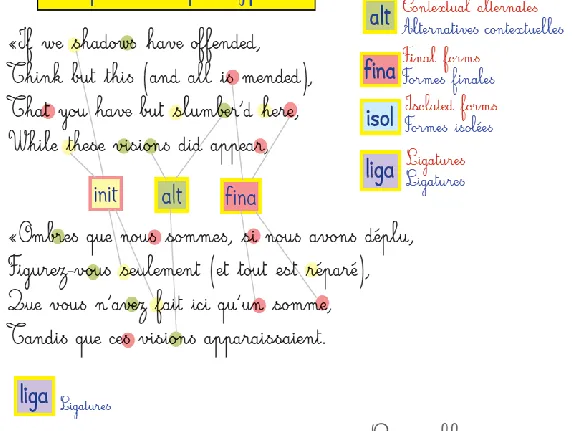 alt
Contextual alternates
Alternatives contextuelles
fina
Final forms
Formes finales
isol
Isolated forms
Formes isolées
liga
Ligatures
Ligatures
«If we shadows have offended,
Think but this (and all is mended),
That you have but slumber'd here,
While these visions did appear,
init alt fina
«Ombres que nous sommes, si nous avons déplu,
Figurez-vous seulement (et tout est réparé),
Que vous n'avez fait ici qu'un somme,
Tandis que ces visions apparaissaient.
liga
Ligatures